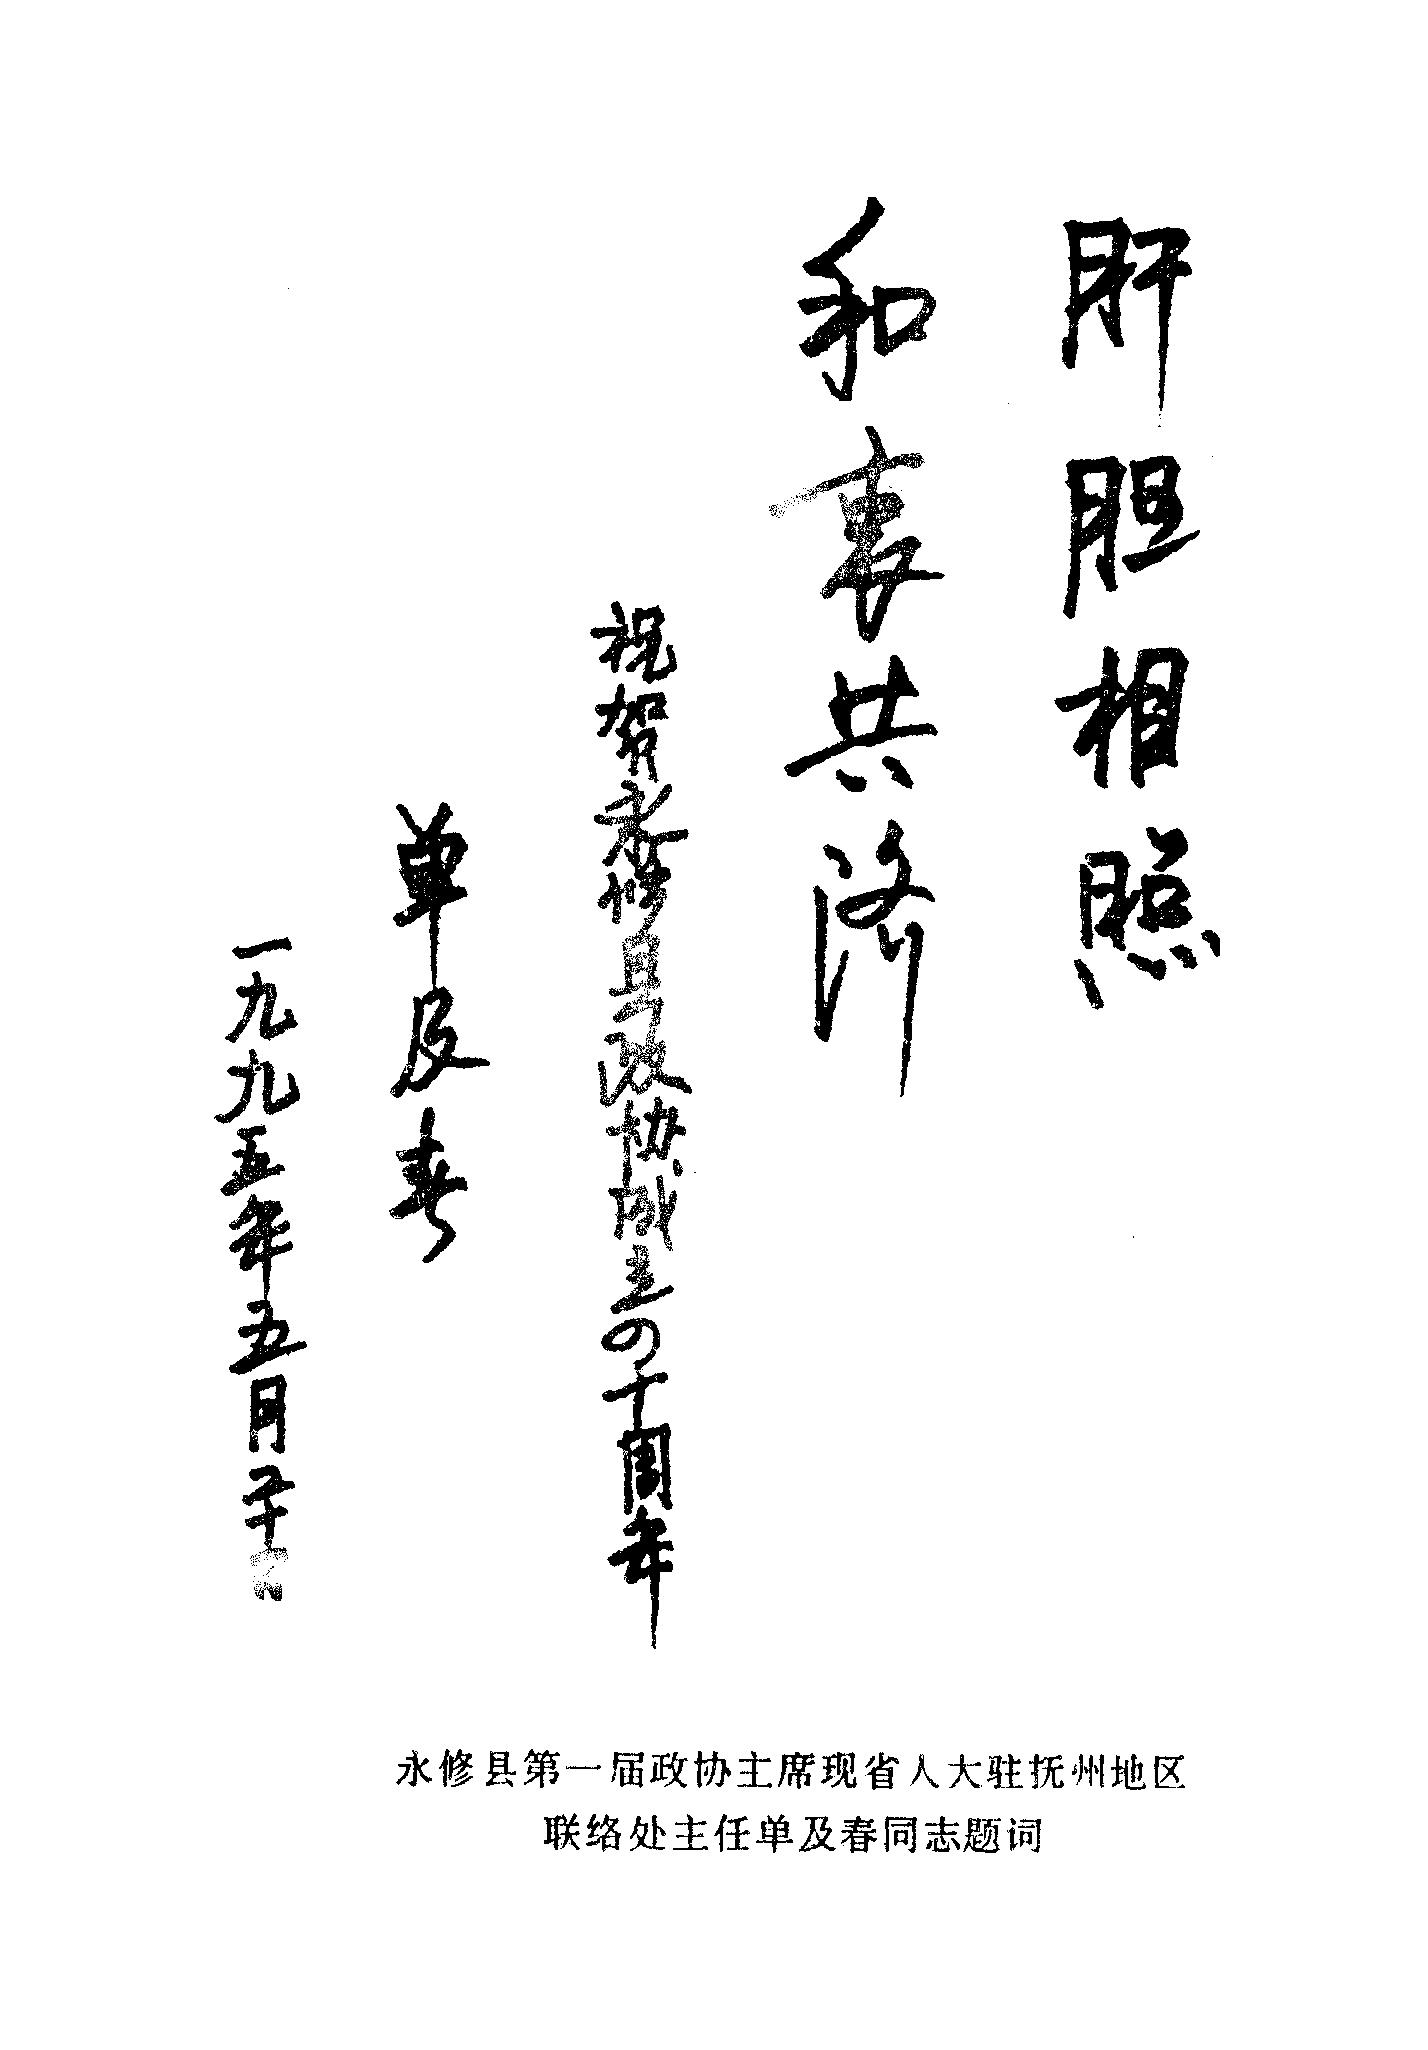 肝胆相照
和衷共济
祝贺永修县政协成立四十周年
单及春
一九九五年五月二十日
永修县第一届政协主席现省人大驻抚州地区
联络处主任单及春同志题词